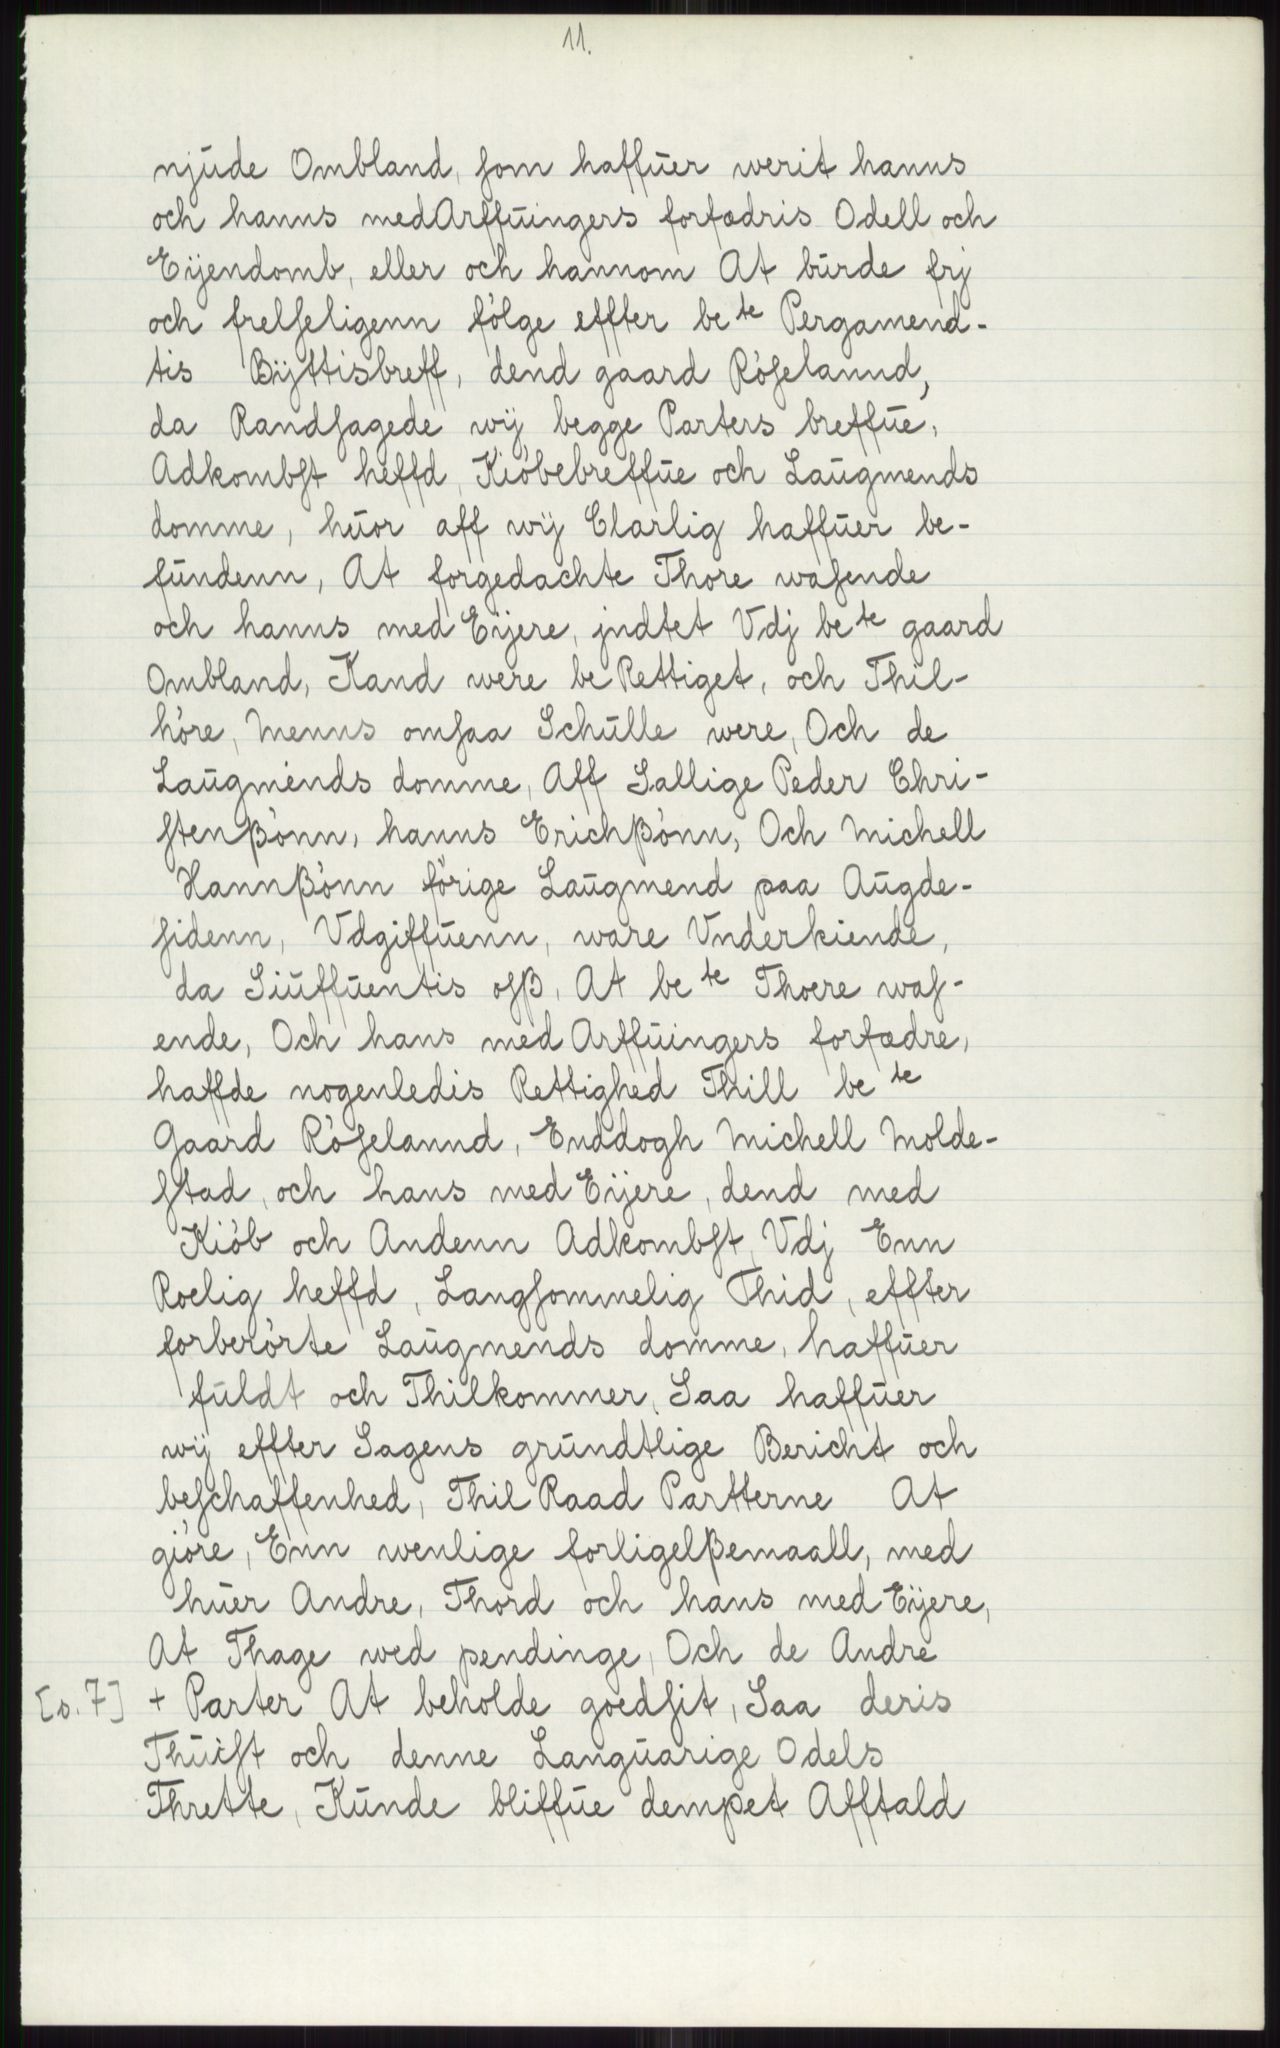 11.
njude Ombland, som haffuer werit hanns
och hanns medArffuingers forfædris Odell och
Eijendomb, eller och hannom At burde frj
och frelseligenn følge effter be te Pergamend-
tis Bÿttisbreff, dend gaard Røselannd,
da Randsagede wÿ begge Parters breffue,
Adkombst heffd, Kiøbebreffue och Laugmends
domme, huor aff wÿ Clarlig haffuer be-
fundenn, At forgedachte Thore wasende
och hanns med Eÿere, jndtet Vdj be te gaard
Ombland, Kand were be Rettiget, och Thil-
høre, Menns omsaa Schulle were, Och de
Laugmends domme, Aff Sallige Peder Chri-
stenßønn, hanns Erichßønn, Och Michell
Hannßønn førige Laugmend paa Augde-
sidenn, Vdgiffuenn, ware Vnderkiende,
da Siuffuentis osß, At be te Thoere was-
ende, Och hans med Arffuingers forfædre,
haffde nogenledis Rettighed Thill be te
Gaard Røselannd, Enddogh Michell Molde-
stad, och hans med Eÿere, dend med
Kiøb och Andenn Adkombst, Vdj Enn
Roelig heffd, Langsommelig Thid, effter
forberørte Laugmends domme, haffuer
fuldt och Thilkommer, Saa haffuer
wÿ effter Sagens grundtlige Bericht och
beschaffenhed, Thil Raad Partterne At
giøre, Enn wenlige forligelßemaall, med
huer Andre, Thord och hans med Eÿere,
At Thage wed pendinge, Och de Andre
[s. 7] + Parter At beholde goedsit, Saa deris
Thuist och denne Languarige Odels
Threte, Kunde bliffue dempet Afftald